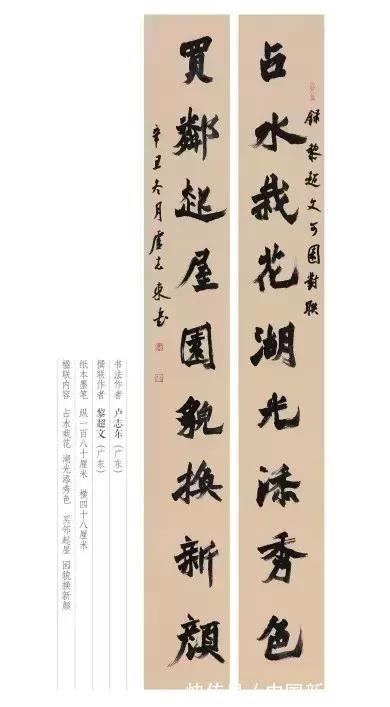 占水栽花湖光添秀色
錄黎超文可園對联
買鄰起屋園貌換新顏
辛丑冬月盧志東書
书法作者 卢志东（广东）
撰联作者 黎超文（广东）
纸本墨笔 纵一百八十厘米 横四十八厘米
楹联内容 占水栽花 湖光添秀色 买邻起屋 园貌换新颜